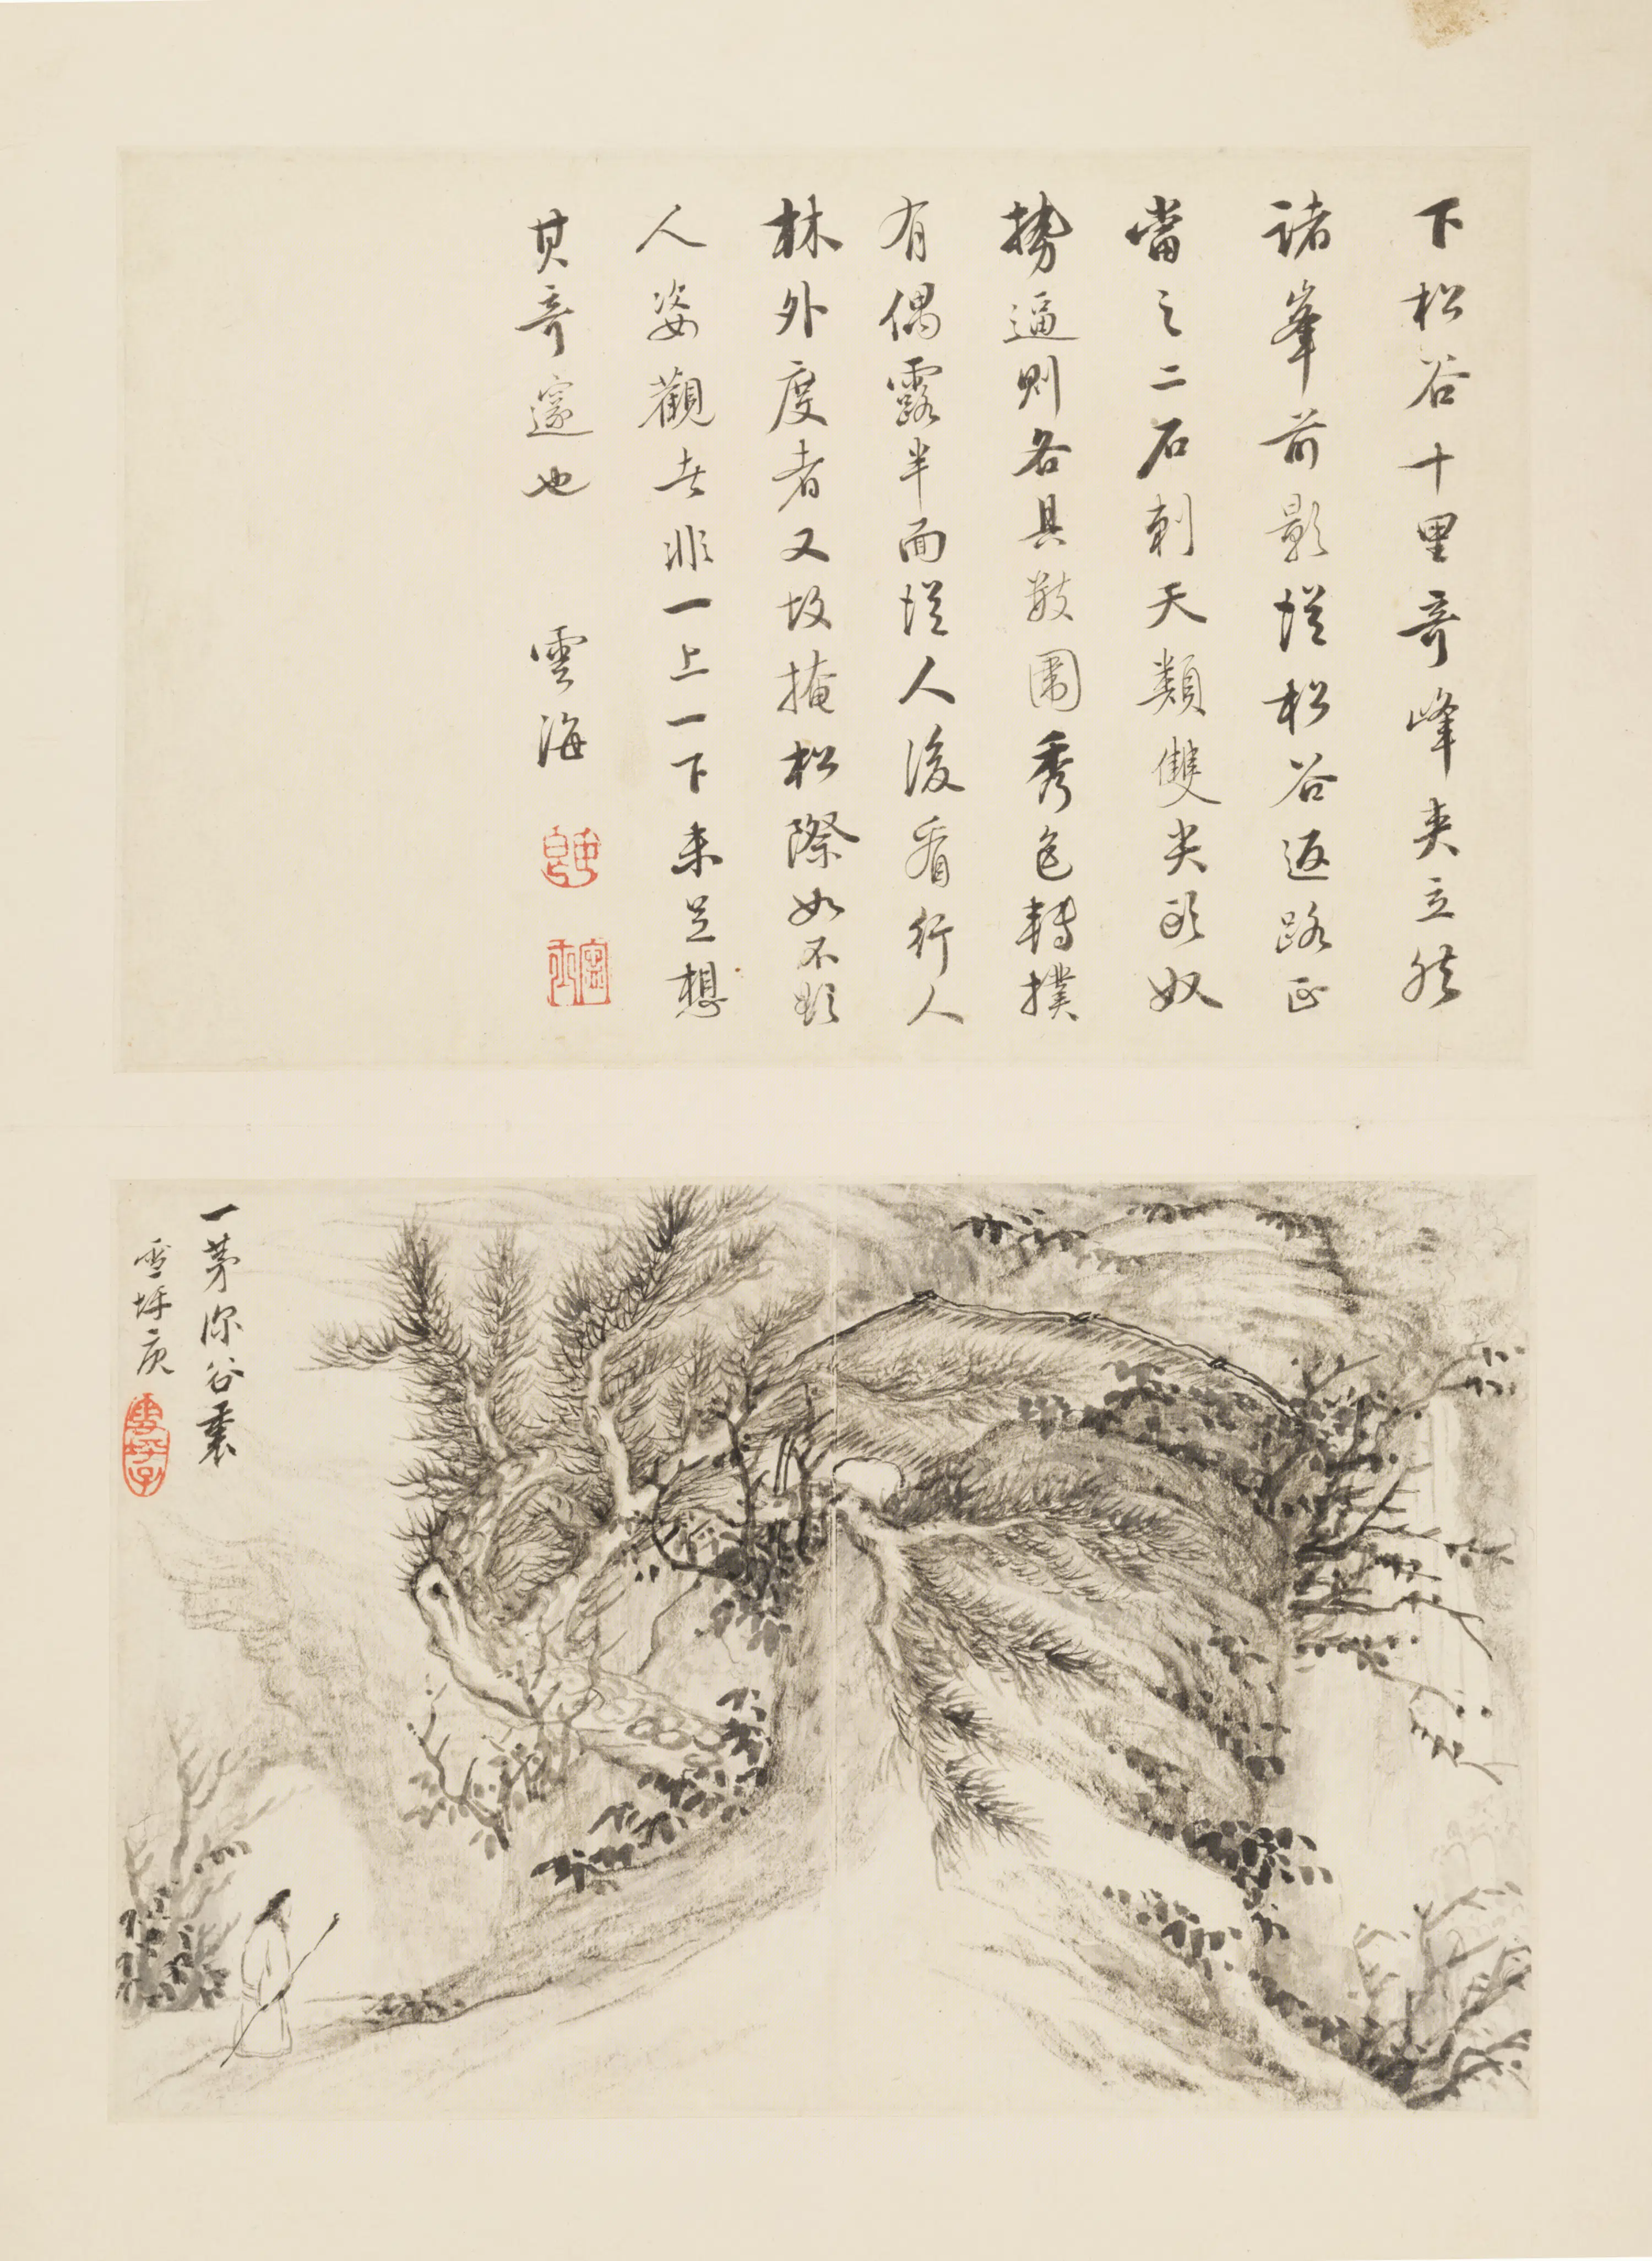 下松谷十里奇峰夾立然
諸峯前影從松谷返路正
當之二石刺天類雙尖頭奴
勢逼則各具數圍秀色轉撲
有偶露半面從人後看行人
林外度者又故掩松際如不欲
人姿觀者非一上一下未足想
其奇邃也
雲海
一茅深谷裏
雪坪庚